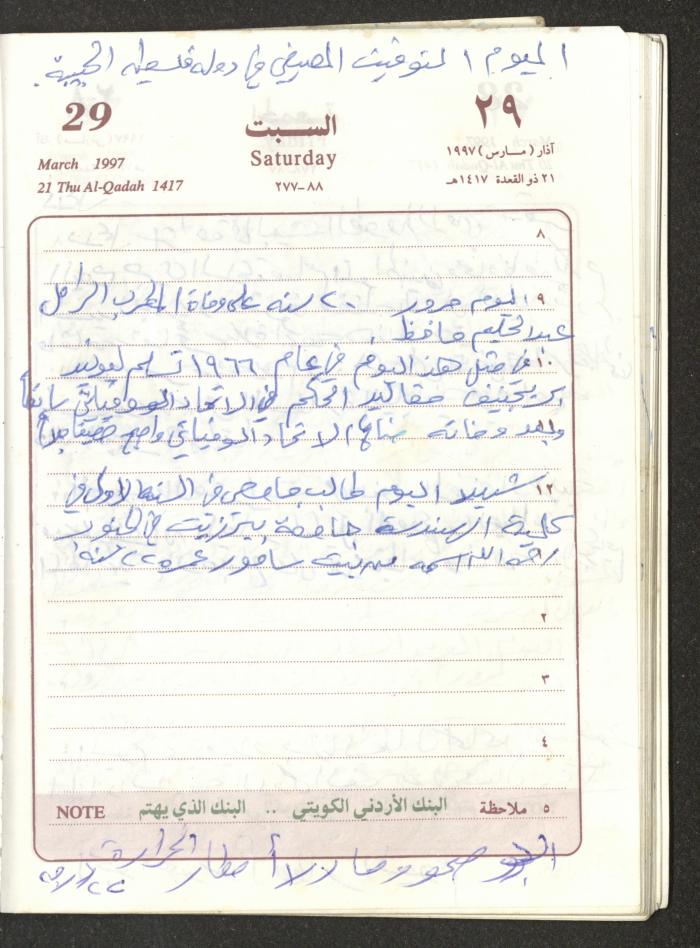 اليوم التوقيت الصيفي في دولة فلسطين الحبيبة.
29
March 1997
21 Thu Al-Qadah 1417
السبت
Saturday
٢٧٧-٨٨
٢٩
آذار (مارس) ١٩٩٧
٢١ ذو القعدة ١٤١٧هـ
٨
٩ اليوم مرور ٢٠ سنه على وفاة المطرب الراحل
عبد الحليم حافظ
١٠ في مثل هذا اليوم في عام ١٩٦٦ تسلم ليونيد
بريجنيف مقاليد الحكم في الاتحاد السوفياتي سابقا
وبعد وفاته الاتحاد السوفياتي واصبح
١٢ شهيد اليوم طالب جامعي في السنة الاولى في
كلية الهندسة جامعة بيرزيت في
رحمه الله اسمه عمره ٢٢ سنه
٢
٣
٤
٥ ملاحظة البنك الأردني الكويتي .. البنك الذي يهتم NOTE
الجو صحو ولا أمطار الحرارة